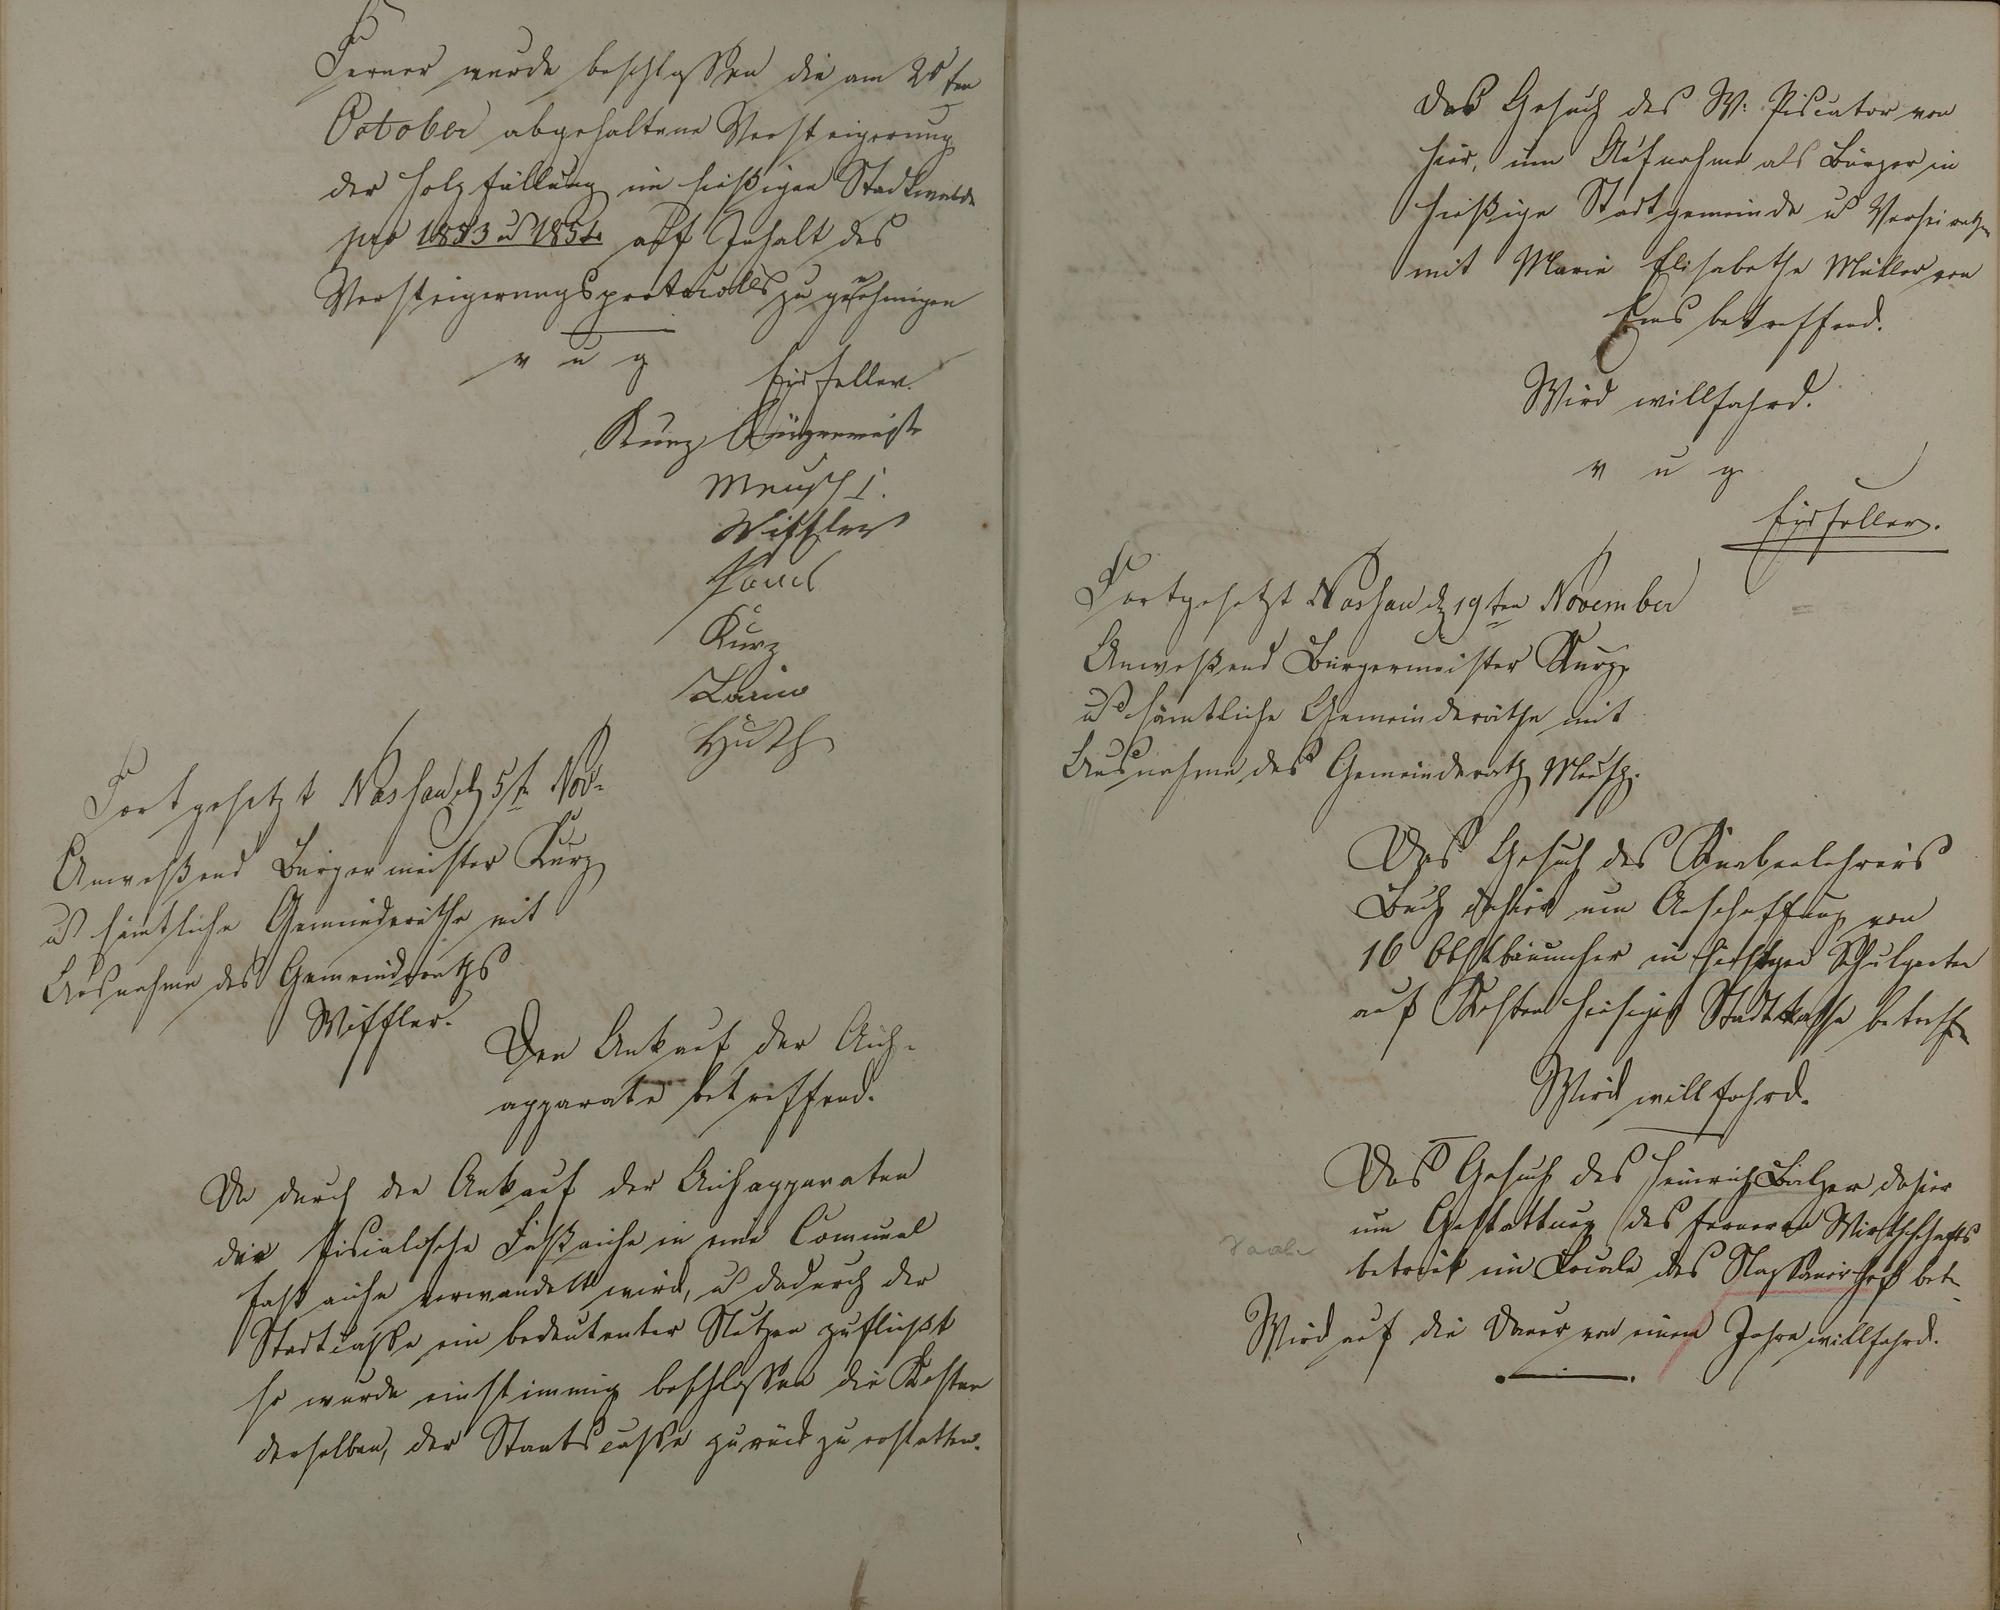 Ferner wurde beschlossen die am 28ten
October abgehaltene Versteigerung
der Holzfällung im hießigen Stadtwalde
pro 1853 u 1854 auf Inhalt des
Versteigerungsprotocolls zu genehmigen
v u g
Eisfeller.
Kurz Bürgermeister
Meusch I.
Wiffler
Paul
Kurz
Huth
Fortgesetzt Nassau d 5t Nov.
Anweßend Bürgermeister Kurz
u sämtliche Gemeinderäthe mit
Ausnahme des Gemeindraths
Wiffler.
Den Ankauf der Aich-
apparate betreffend.
Da durch den Ankauf der Aichapparaten
die fiscialische Faßaiche in eine Comunal
faß aiche verwandelt wird, u dadurch der
Stadtcasse ein bedeutenter Nutzen zufließt
so wurde einstimmig beschlossen die Kosten
derselben, der Staatscasse zurück zu erstatten.
Das Gesuch des W: Piscator von
hier, um Aufnahme als Bürger in
hießige Stadtgemeinde u Verheirathen
mit Marie Elisabethe Müller von
Ems betreffend.
Wird willfahrd.
v u g
Eisfeller.
Fortgesetzt Nassau d 19ten November
Anweßend Bürgermeister Kurz
u sämtliche Gemeinderäthe mit
Ausnahme des Gemeinderath Meusch.
Das Gesuch des Knabenlehrers
Buch dahier um Anschaffung von
16 Obstbäumcher in hiesigen Schulgarten
auf Kosten hiesiger Stadtkasse betreff
Wird willfahrd.
Das Gesuch des Heinrich Balzer dahier
um Gestattung des ferneren Wirthschafts
betrieb im Locale des Nassauer Hof betr.
Wird auf die Dauer von einem Jahre willfahrd.